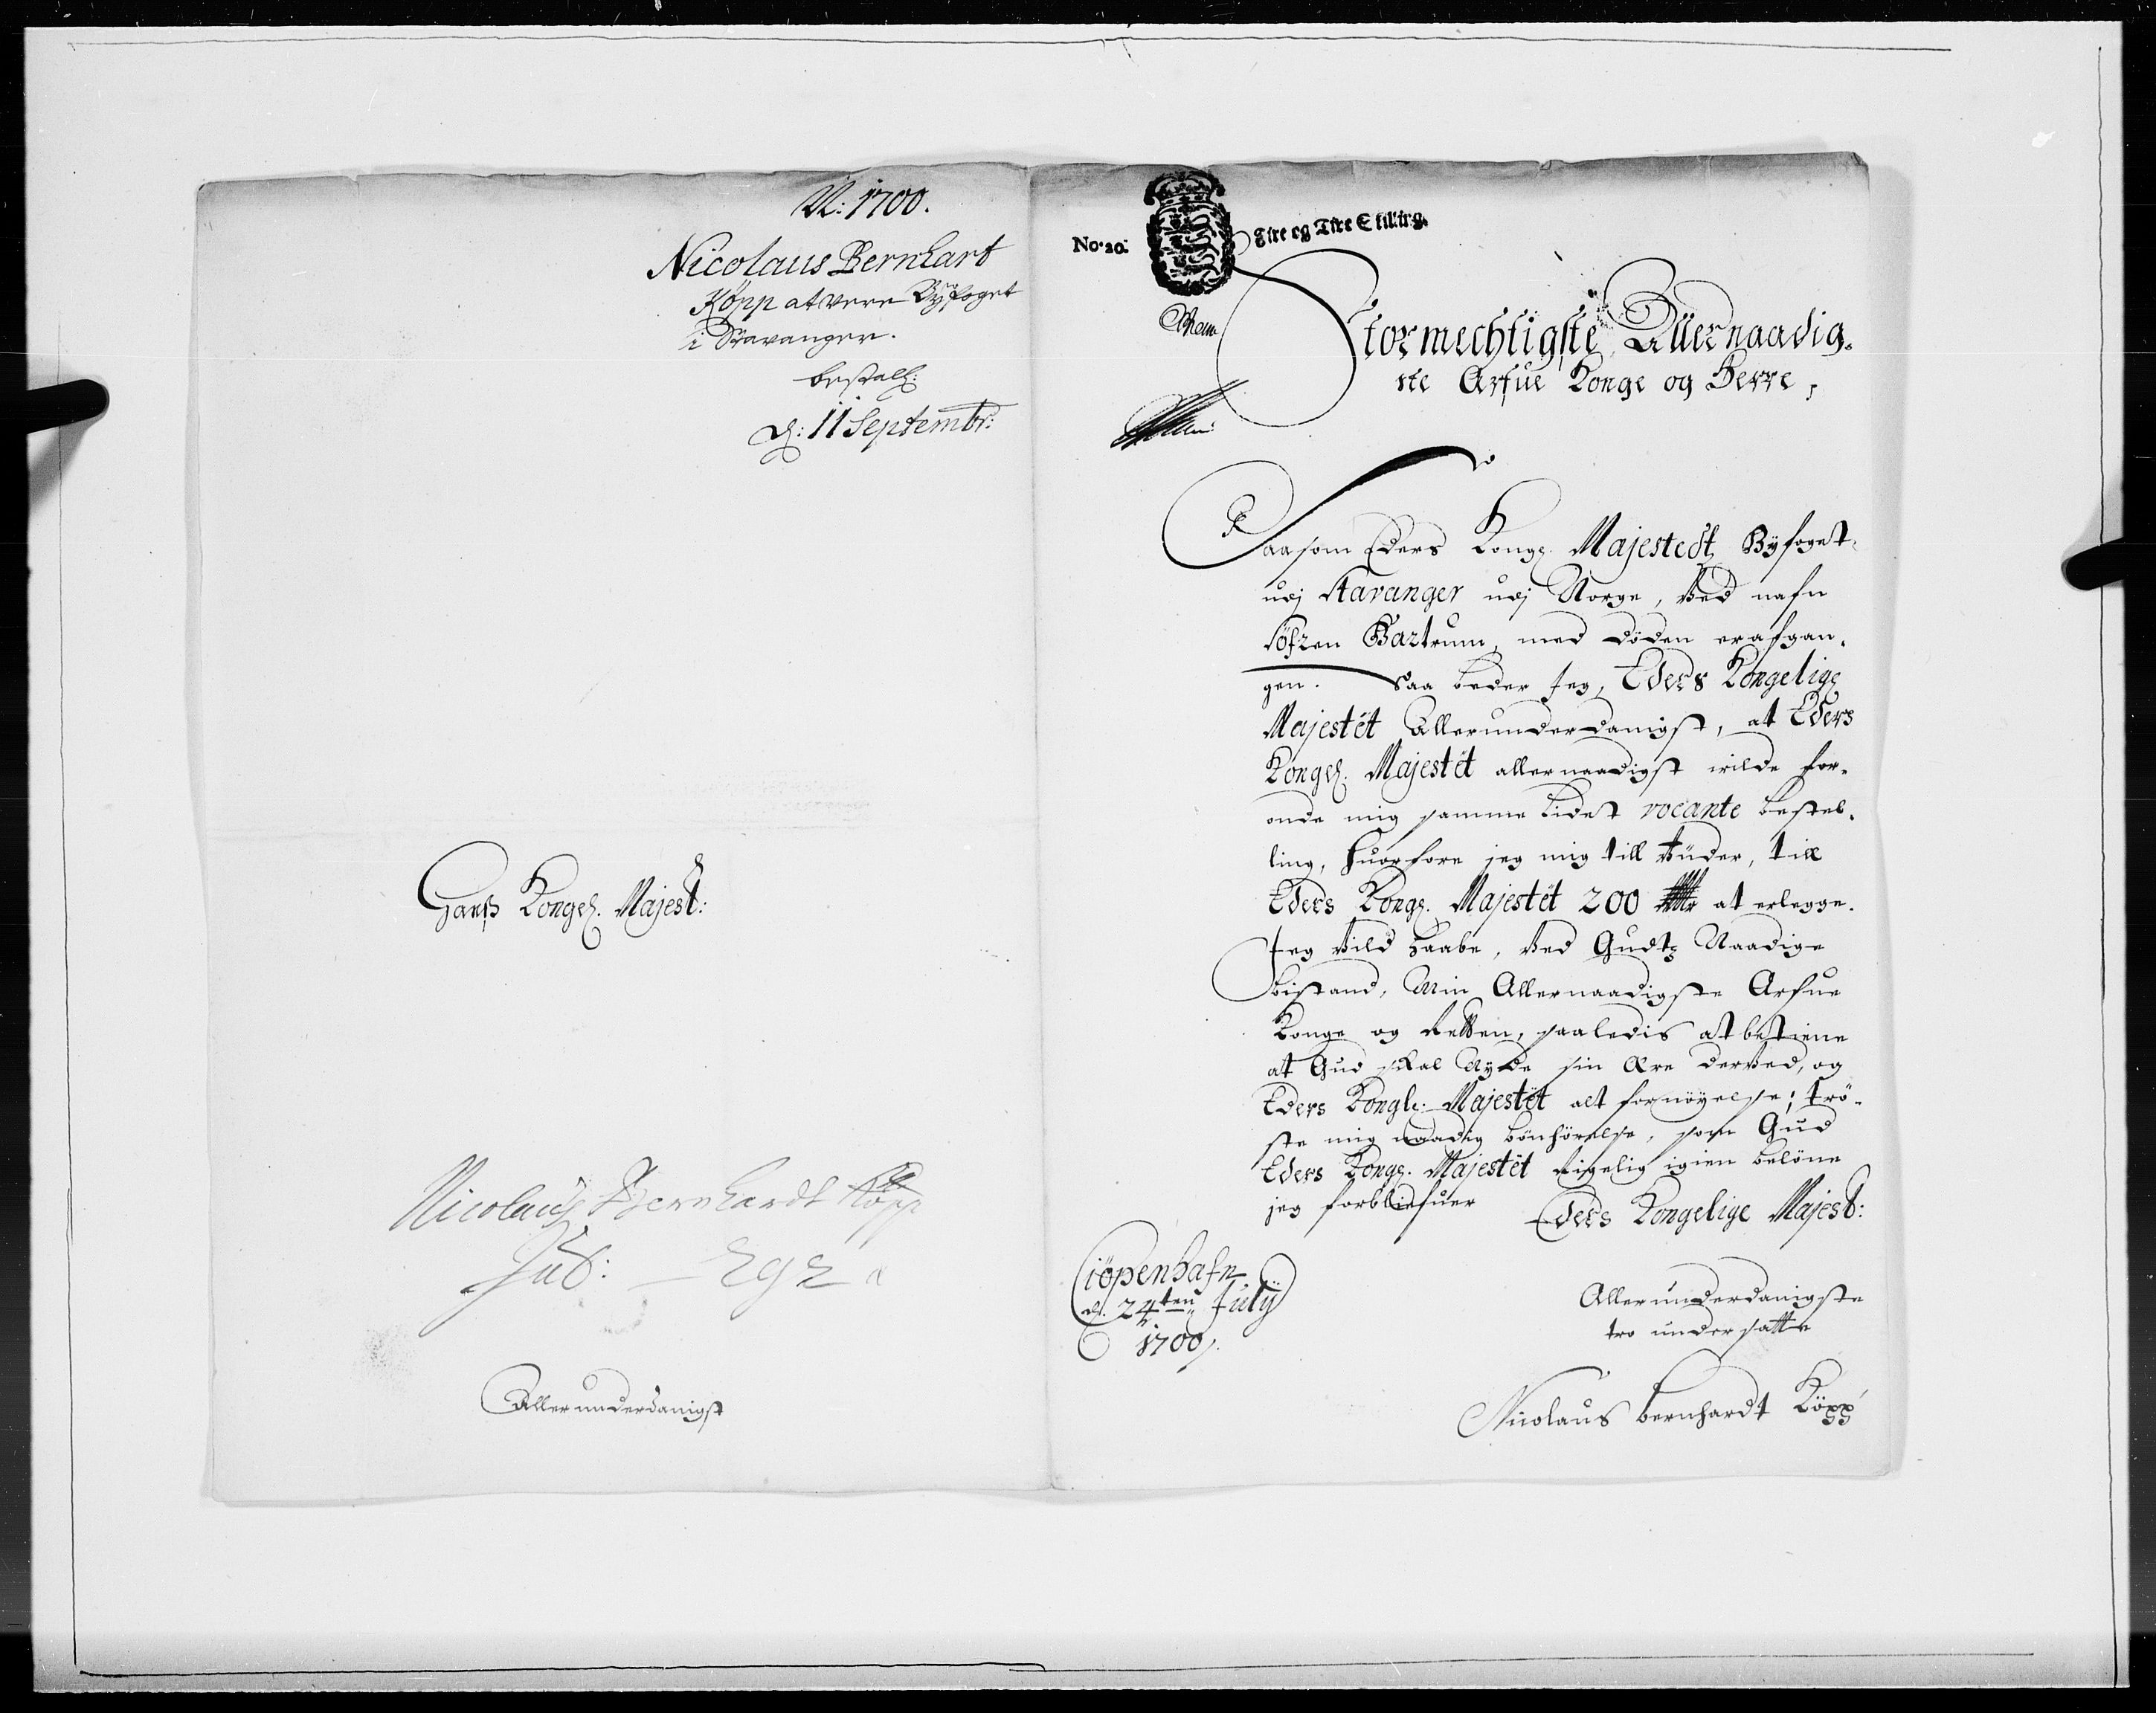 N: 1700.
Nicolaus Bernhart
Köpp at vere Byfoget
i Stavanger.
bestall:
d: 11 Septembr:
Hanß Kongel. Majest:
Nicolaus Bernhardt Köpp
Allerunderdanigst
No. 20. Fire og Tive Skilling.
Stormechtigste Allernaadig-
ste Arfue Konge og Herre,
Saasom Eders Kongl. Majestedt Byfoget
udj Stavanger udj Norge, Ved nafn
Söfren Bartrum, med döden er afgan-
gen. Saa beder Jeg, Eders Kongelige
Majestët Allerunderdanigst, at Eders
Kongel. Majestët allernaadigst wilde for-
onde mig samme lidet vocante bestel-
ling, huorfore jeg mig till biuder, till
Eders Kongl. Majestët 200 at erlegge.
Jeg vild haabe, ved Gudtz Naadige
bistand, Min Allernaadigste Arfue
Konge og Retten, saaledis at betiene
at Gud skal Nyde sin Ære derved, og
Eders Kongl. Majestët alt fornöyelse; trö-
ste mig naadig bönhörelse, som Gud
Eders Kongl. Majestët Rigelig igien belöne
jeg forbliefuer Eders Kongelige Majest:
Ciöpenhafn
d. 24ten Julij
1700.
Allerunderdanigste
tro undersatte
Nicolaus bernhardt Köpp